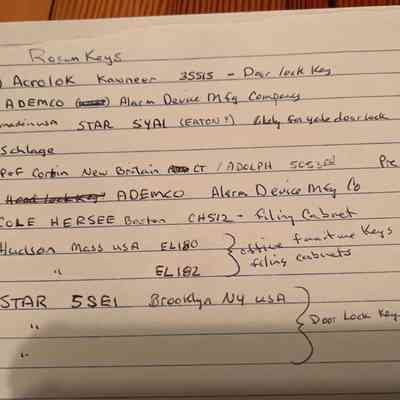 Rosun Keys
) Acrolok Kawneer 35515 - Door lock key
ADEMCO Alarm Device Mfg Company
made in USA STAR 5YAL (EATON?) likely for yale door lock
Schlage
P&F Corbin New Britain CT / ADOLPH Pre
Head lock key ADEMCO Alarm Device Mfg Co
COLE HERSEE Boston CH512 - Filing Cabinet
Hudson Mass USA EL180 office furniture keys
" EL182 filing cabinets
STAR 5SE1 Brooklyn NY USA
" Door Lock Key
"